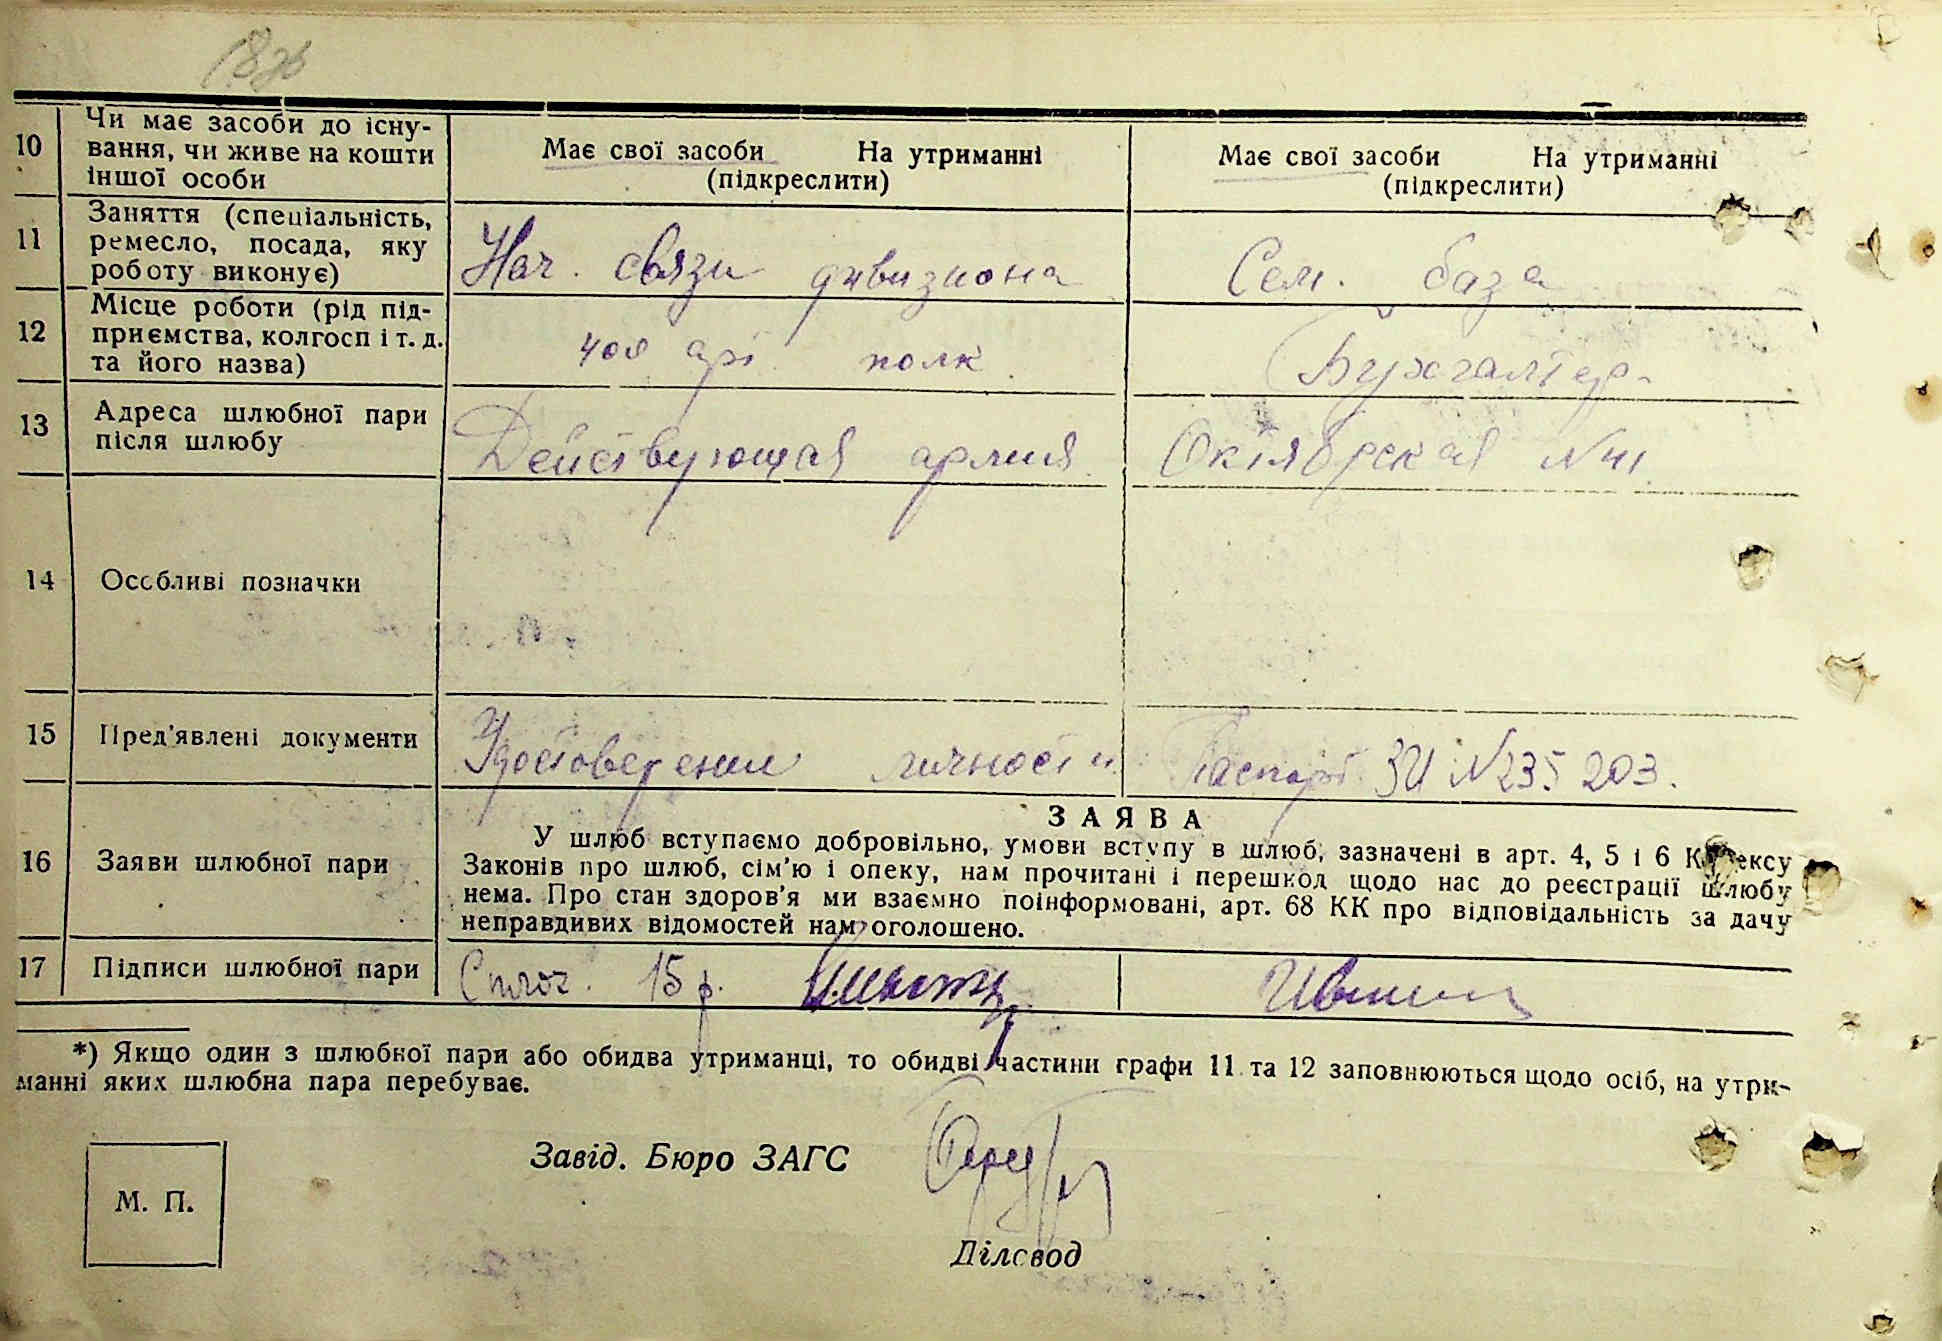 18зв
10 Чи має засоби до існу-
вання, чи живе на кошти
іншої особи
Має свої засоби На утриманні
(підкреслити)
Має свої засоби На утриманні
(підкреслити)
11 Заняття (спеціальність,
ремесло, посада, яку
роботу виконує)
Нач. связи дивизиона
Сем. база
12 Місце роботи (рід під-
приємства, колгосп і т. д.
та його назва)
арт полк
Бухгалтер
13 Адреса шлюбної пари
після шлюбу
Действующая армия
Октябрская N 41
14 Особливі позначки
15 Пред'явлені документи
Удостоверение личности
Паспорт ЗИ N 235 203.
16 Заяви шлюбної пари
ЗАЯВА
У шлюб вступаємо добровільно, умови вступу в шлюб, зазначені в арт. 4, 5 і 6 Кодексу
Законів про шлюб, сім'ю і опеку, нам прочитані і перешкод щодо нас до реєстрації шлюбу
нема. Про стан здоров'я ми взаємно поінформовані, арт. 68 КК про відповідальність за дачу
неправдивих відомостей нам оголошено.
17 Підписи шлюбної пари
15 р.
*) Якщо один з шлюбної пари або обидва утриманці, то обидві частини графи 11 та 12 заповнюються щодо осіб, на утри-
манні яких шлюбна пара перебуває.
Завід. Бюро ЗАГС
М. П.
Діловод